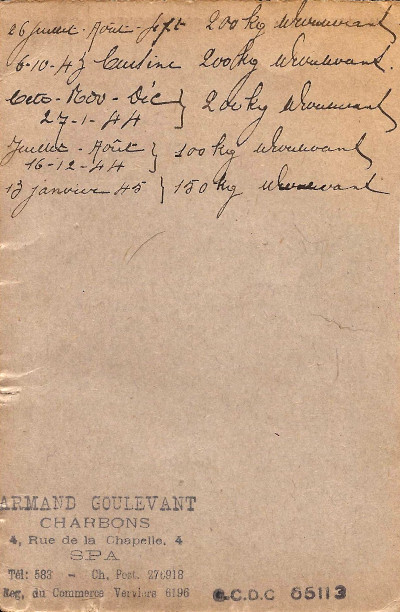 26 Juillet - Août - Sept 200 kg
6-10-43 Cuisine 200 kg
Octo - Nov - Déc } 200 kg
27-1-44
Juillet - Août } 100 kg
16-12-44
13 janvier 45 } 150 kg
ARMAND GOULEVANT
CHARBONS
4, Rue de la Chapelle, 4
SPA
Tél: 583 - Ch. Post. 270918
Reg. du Commerce Verviers 6196 C.C.D.C 65113